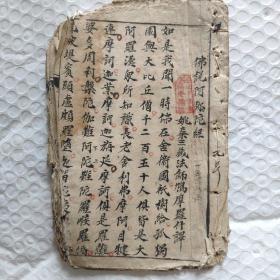 佛說阿彌陀經
姚秦三藏法師鳩摩羅什譯
如是我聞一時佛在舍衛國祇樹給孤獨
園與大比丘僧千二百五十人俱皆是大
阿羅漢眾所知識長老舍利弗摩訶目犍
連摩訶迦葉摩訶迦旃延摩訶俱
婆多周利槃陀伽難陀阿難陀羅睺羅憍
賓頭盧頗羅墮